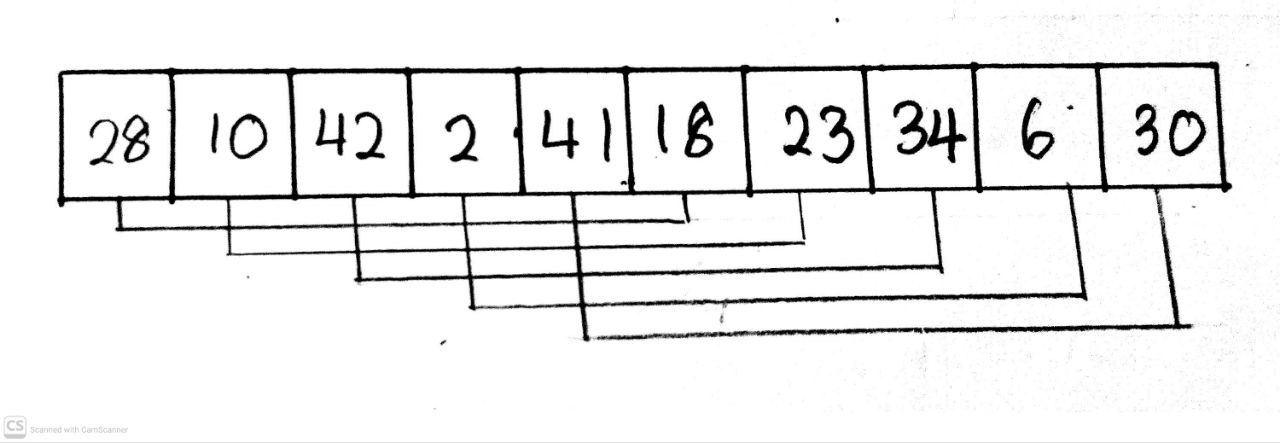 28 10 42 2 41 18 23 34 6 30
CS Scanned with CamScanner